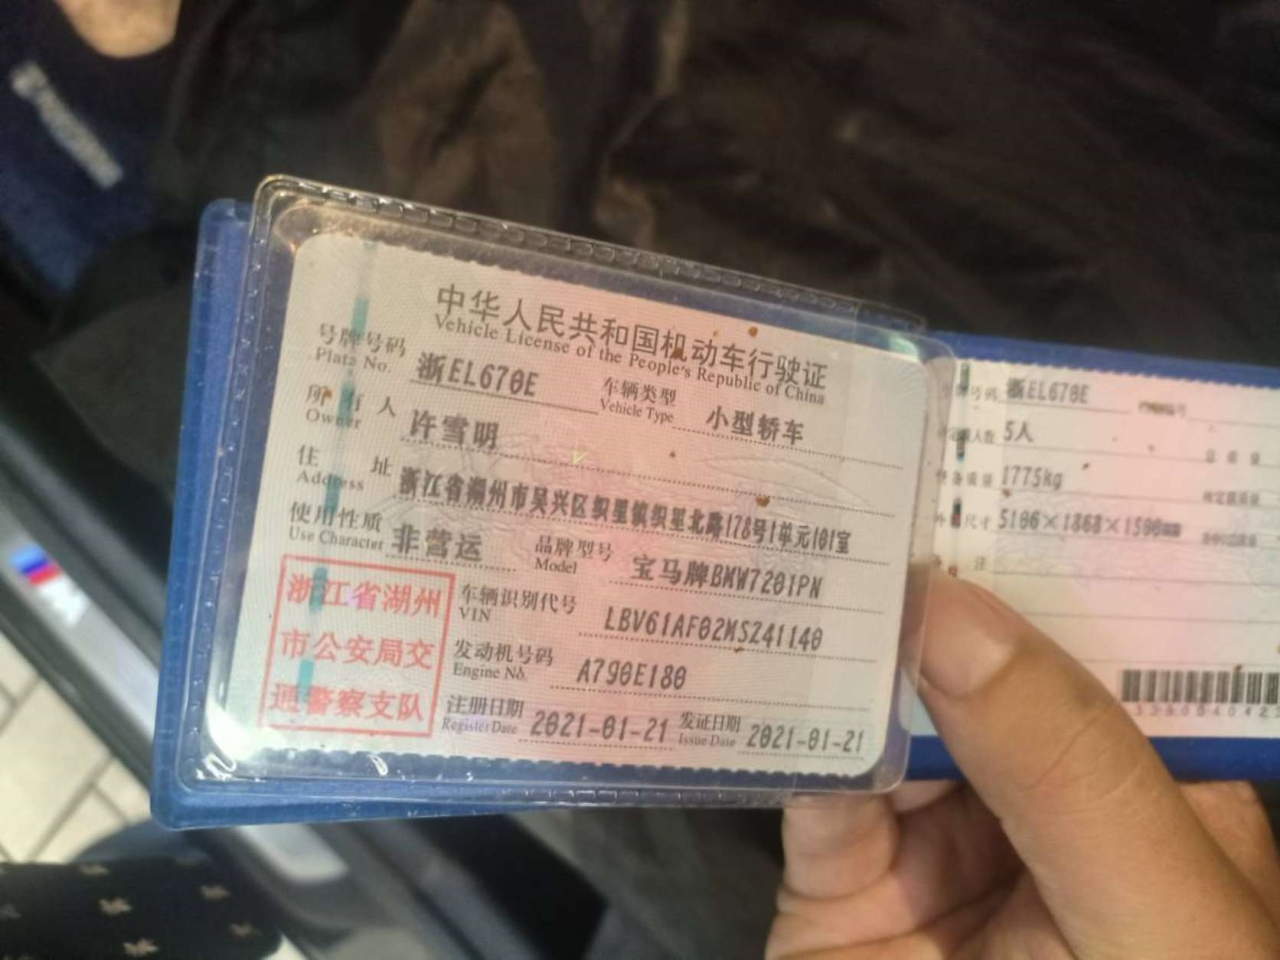 中华人民共和国机动车行驶证
Vehicle License of the People's Republic of China
号牌号码 浙EL670E 车辆类型 小型轿车
Plate No. Vehicle Type
所有人 许雪明
Owner
住址 浙江省湖州市吴兴区织里镇织里北路178号1单元101室
Address
使用性质 非营运 品牌型号 宝马牌BMW7201PN
Use Character Model
浙江省湖州
市公安局交
通警察支队
车辆识别代号 LBV61AF02MSZ41140
VIN
发动机号码 A790E180
Engine No.
注册日期 2021-01-21 发证日期 2021-01-21
Register Date Issue Date
号牌号码 浙EL670E
人数 5人
质量 1775kg
尺寸 5106×1868×1500mm
注